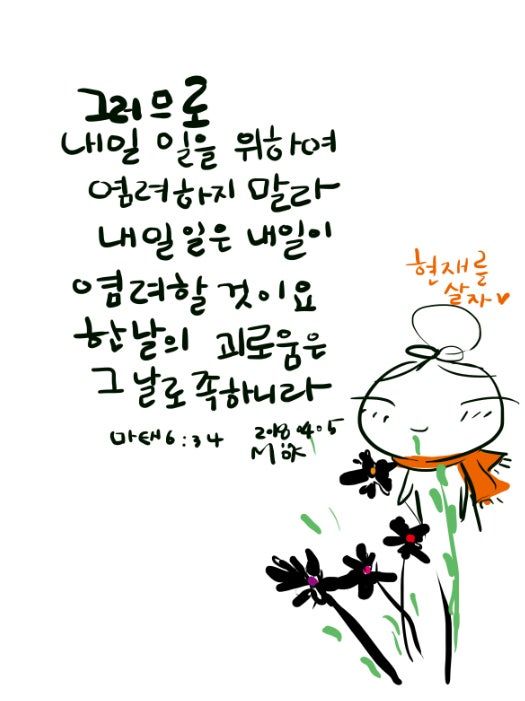 그러므로
내일 일을 위하여
염려하지 말라
내일 일은 내일이
염려할 것이요
한 날의 괴로움은
그 날로 족하니라
마태 6:34 2018.04.05
현재를
살자♥